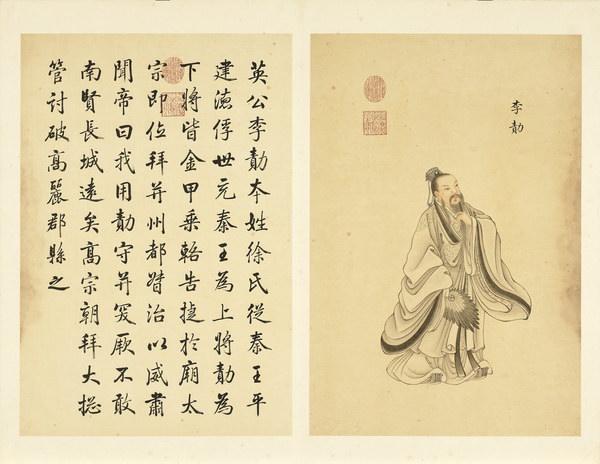 李勣
英公李勣夲姓徐氏從秦王平
建德俘世充秦王為上將勣為
下將皆金甲乗輅告捷於廟太
宗即位拜并州都督治以威肅
聞帝曰我用勣守并突厥不敢
南賢長城遠矣高宗朝拜大揔
管討破高麗郡縣之